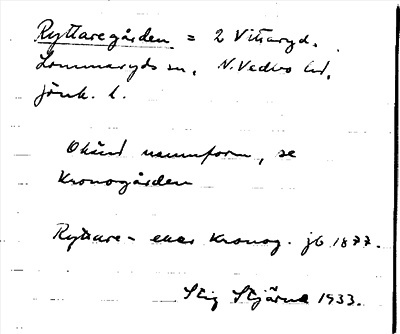 Ryttaregården = 2 Vittaryd.
Lommaryds sn, N. Vedbo hd,
Jönk. l.
Okänd namnform, se
Kronogården
Ryttare- eller Kronog. jb 1877.
Stig Stjärna 1933.